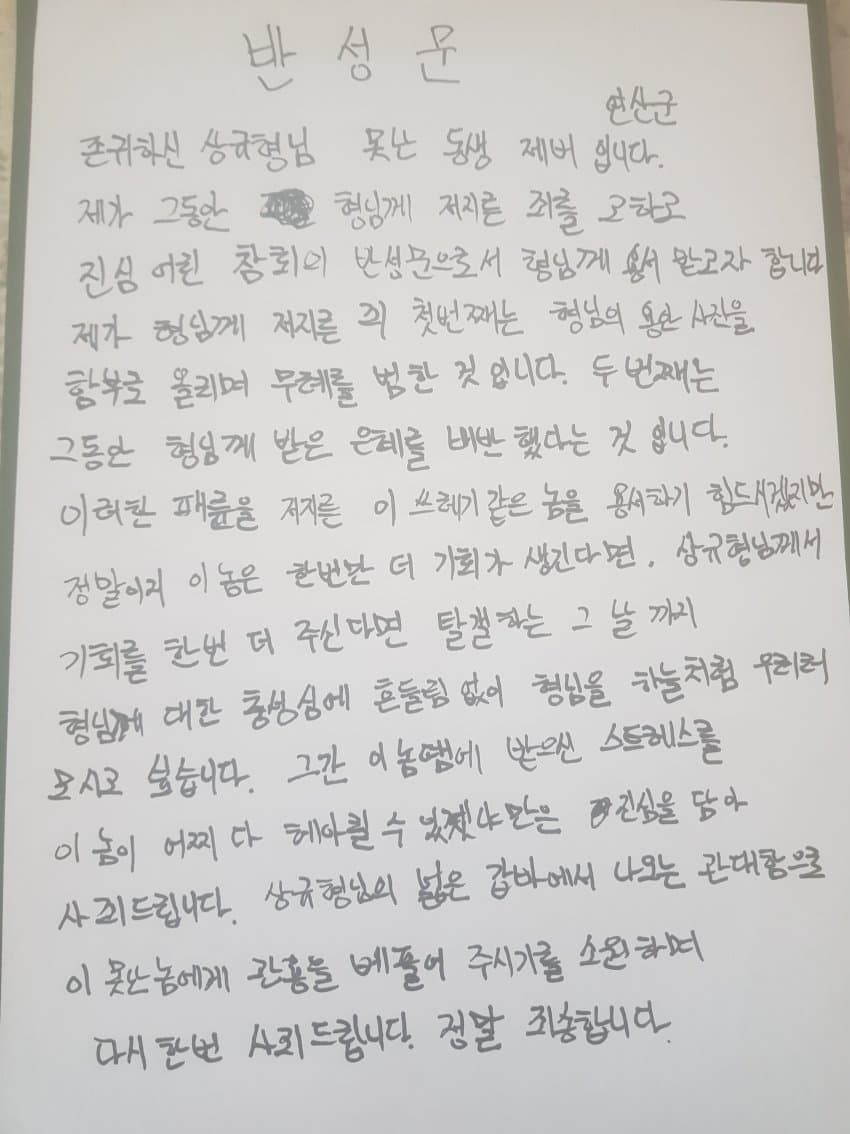 반성문
연산군
존귀하신 상규형님 못난 동생 제버 입니다.
제가 그동안 형님께 저지른 죄를 고하고
진심 어린 참회의 반성문으로서 형님께 용서 받고자 합니다
제가 형님께 저지른 죄 첫번째는 형님의 용안 사진을
함부로 올리며 무례를 범한 것 입니다. 두 번째는
그동안 형님께 받은 은혜를 배반 했다는 것 입니다.
이러한 패륜을 저지른 이 쓰레기 같은 놈을 용서하기 힘드시겠지만
정말이지 이 놈은 한번만 더 기회가 생긴다면, 상규형님께서
기회를 한번 더 주신다면 탈갤하는 그 날 까지
형님에 대한 충성심에 흔들림 없이 형님을 하늘처럼 우러러
모시고 싶습니다. 그간 이 놈땜에 받으신 스트레스를
이 놈이 어찌 다 헤아릴 수 있겠냐만은 진심을 담아
사죄드립니다. 상규형님의 넓은 갑바에서 나오는 관대함으로
이 못난 놈에게 관용을 베풀어 주시기를 소원하며
다시 한번 사죄드립니다. 정말 죄송합니다.